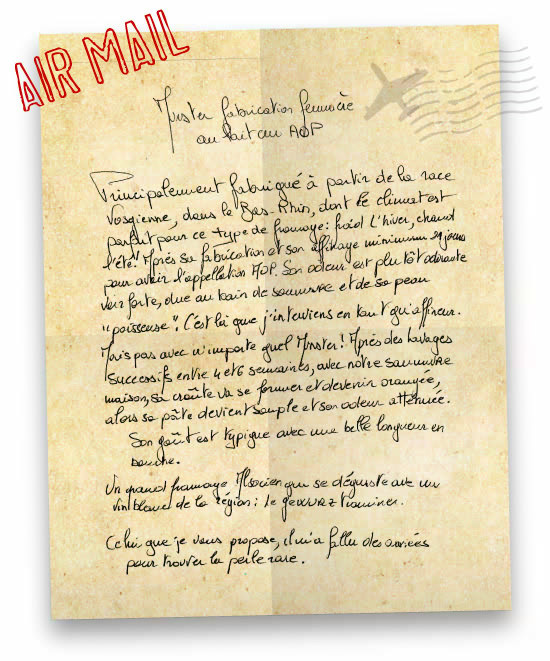 AIR MAIL
Munster fabrication fermière
au lait cru AOP
Principalement fabriqué à partir de la race
Vosgienne, dans le Bas-Rhin, dont le climat est
parfait pour ce type de fromage : froid l'hiver, chaud
l'été. Après sa fabrication et son affinage minimum 21 jours
pour avoir l'appellation AOP. Son odeur est plutôt odorante
voir forte, due au bain de saumure et de sa peau
"poisseuse". C'est là que j'interviens en tant qu'affineur.
Mais pas avec n'importe quel Munster ! Après des lavages
successifs entre 4 et 6 semaines, avec notre saumure
maison, sa croûte va se former et devenir orangée,
alors sa pâte devient souple et son odeur atténuée.
Son goût est typique avec une belle longueur en
bouche.
Un grand fromage Alsacien qui se déguste avec un
vin blanc de la région : le gewurztraminer.
Celui que je vous propose, il m'a fallu des années
pour trouver la perle rare.